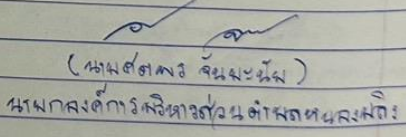 (นายศตพร จันมะนัย)
นายกองค์การบริหารส่วนตำบลหนองปลิง